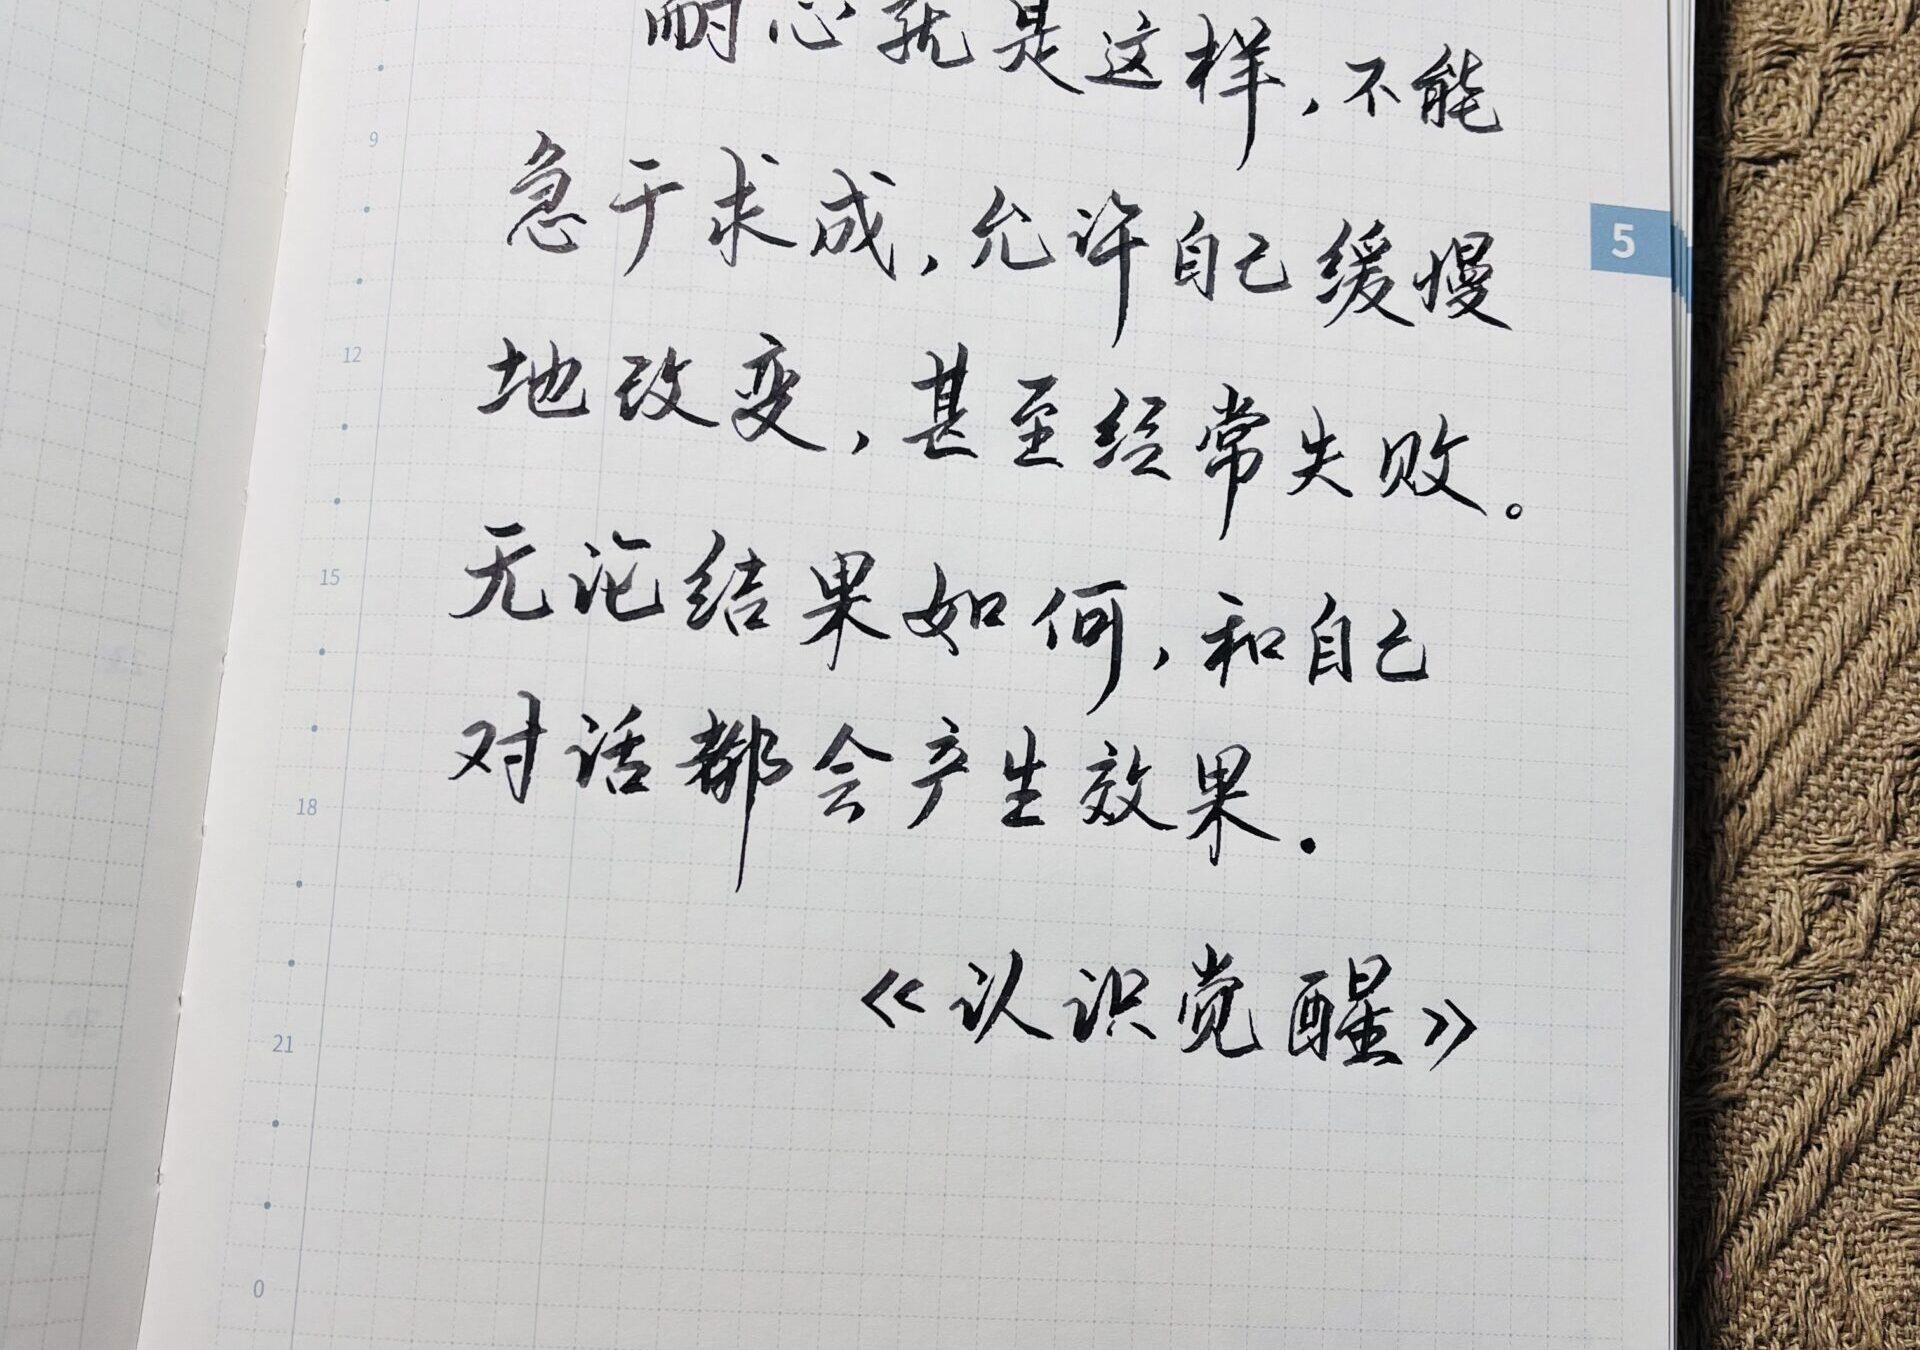 耐心就是这样，不能
急于求成，允许自己缓慢
5
9
地改变，甚至经常失败。
12
无论结果如何，和自己
15
对话都会产生效果.
18
《认识觉醒》
21
0